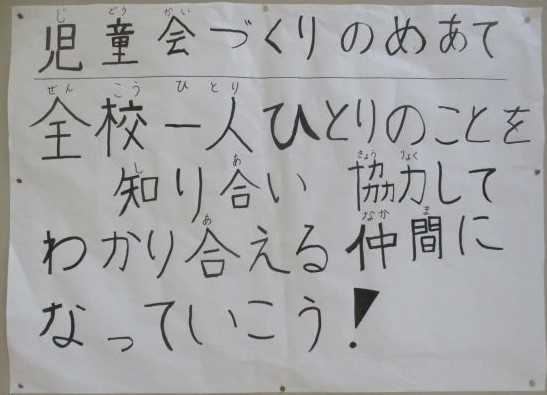 児童会づくりのめあて
全校一人ひとりのことを
知り合い 協力して
わかり合える仲間に
なっていこう!